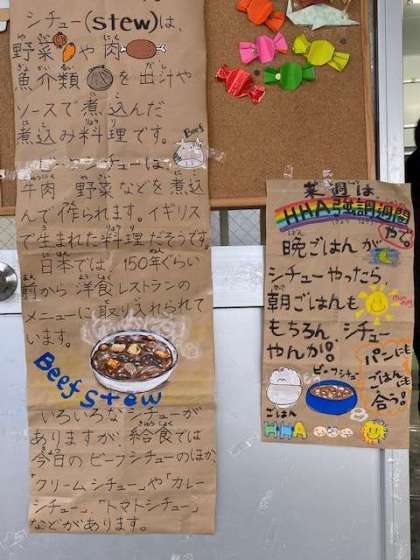 シチュー(stew)は、
野菜や肉
魚介類を出汁や
ソースで煮込んだ
煮込み料理です。
Beef
ビーフシチューは、
牛肉 野菜などを煮込
んで作られます。イギリス
で生まれた料理だそうです。
日本では、150年ぐらい
前から洋食レストランの
メニューに取り入れられて
います。
Beef Stew
いろいろなシチューが
ありますが、給食では
今日のビーフシチューのほか、
「クリームシチュー」や「カレー
シチュー」、「トマトシチュー」
などがあります。
葉調は
HHA強調週間
やで
晩ごはんが
シチューやったら
朝ごはんも
もちろん、シチュー
やんか!
パンにも
ごはんにも
合う。
ビーフシチュー
ごはん
HHA